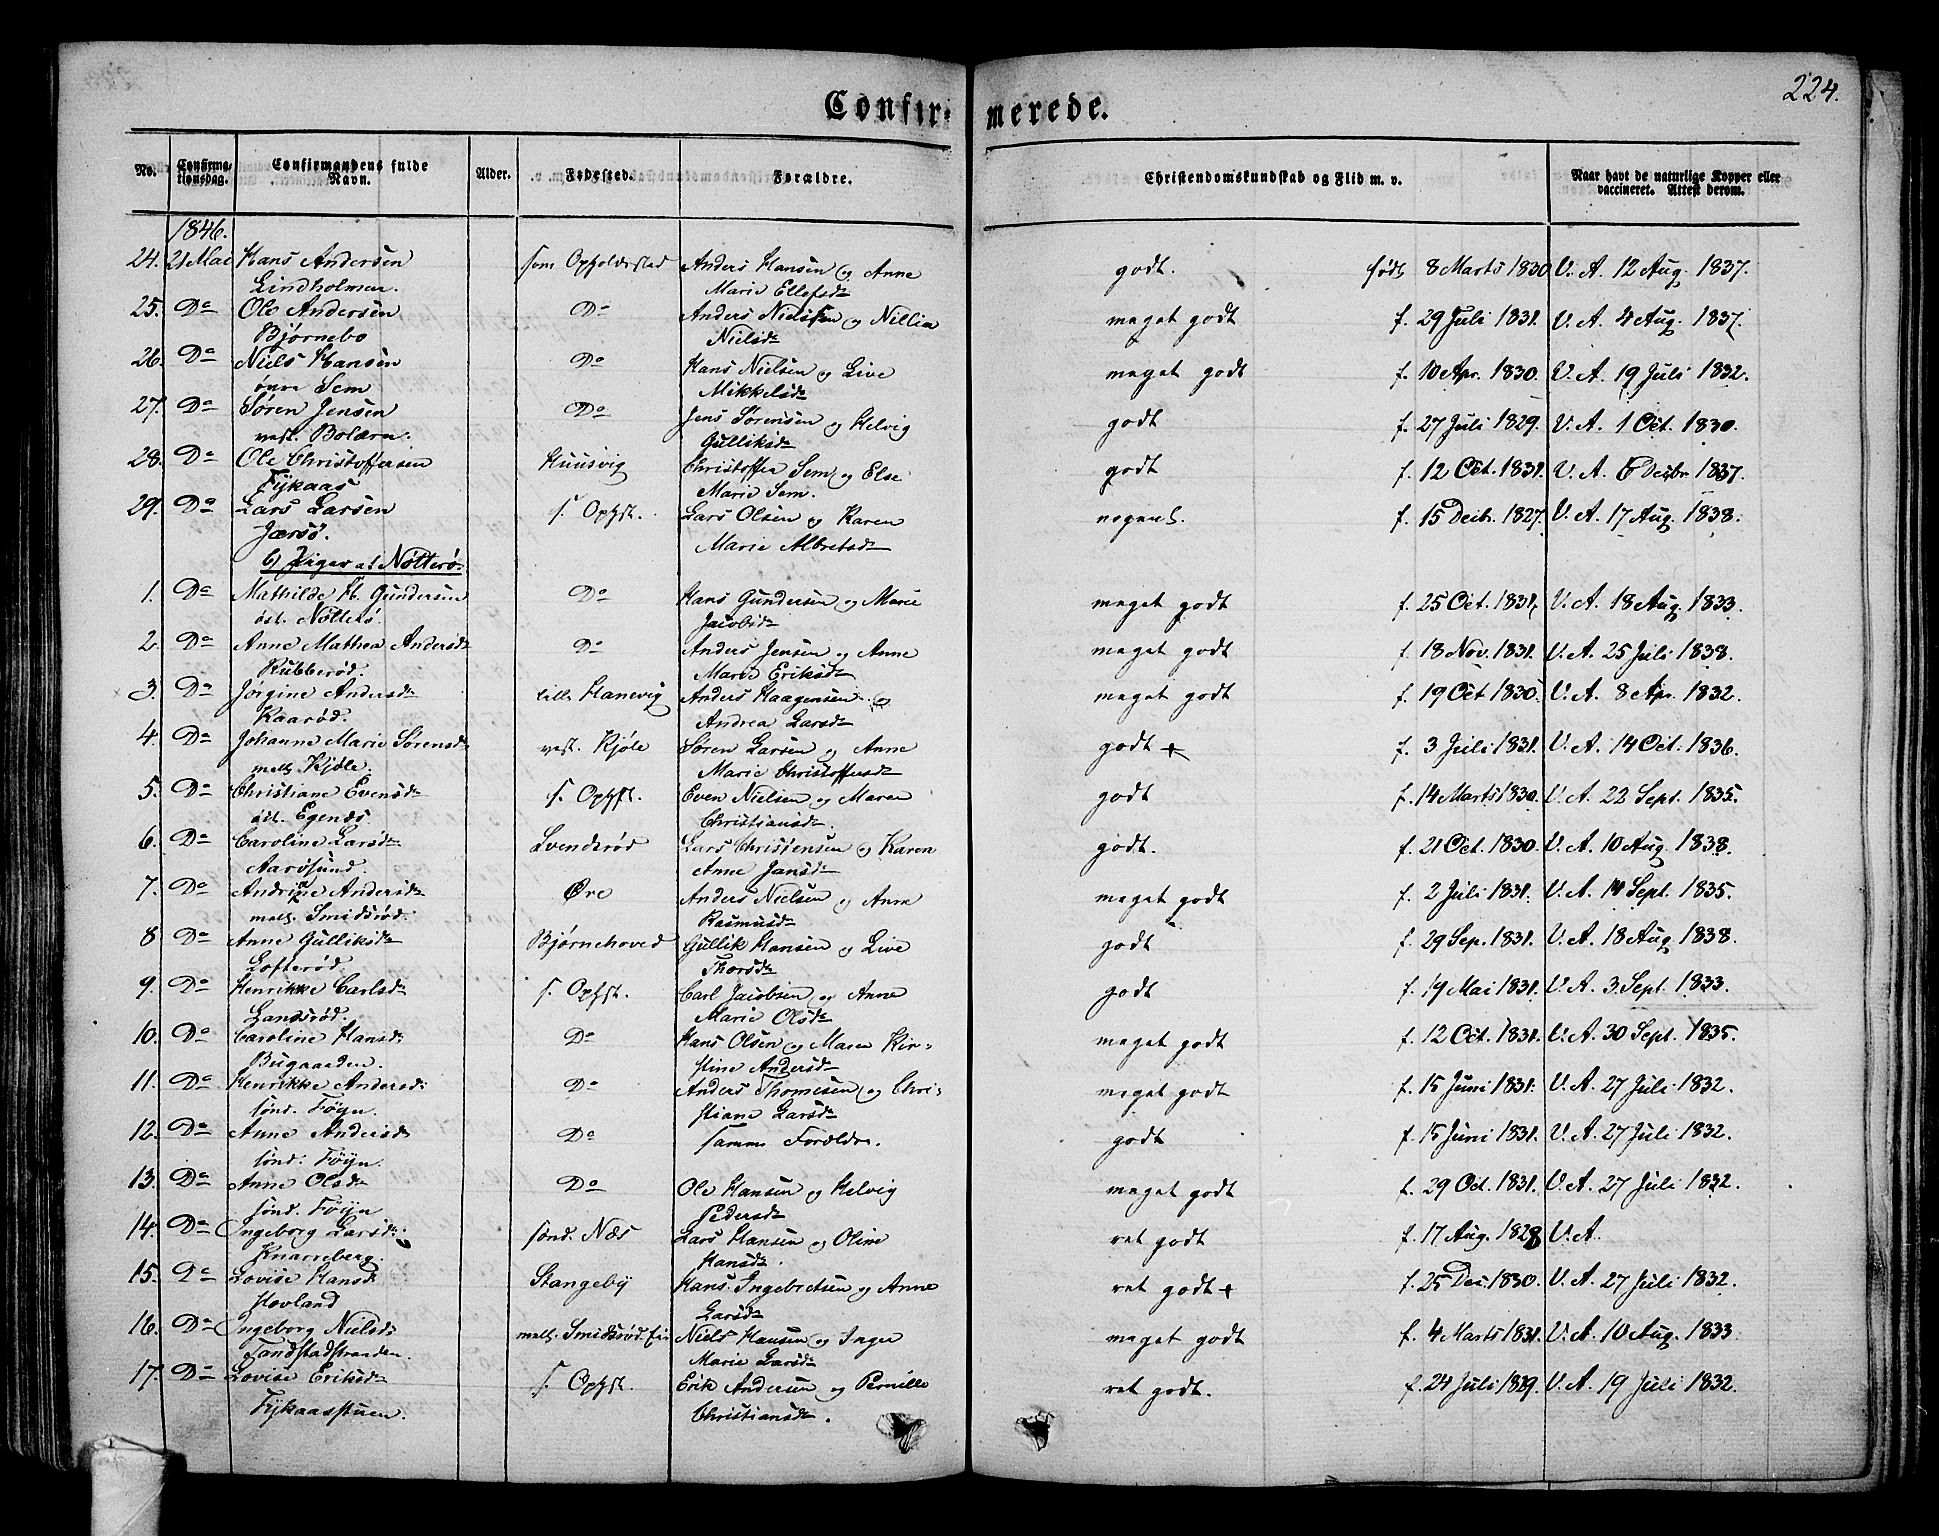 224.
Confirmerede.
No. Confirmationsdag. Confirmandens fulde Navn. Alder. Fødested. Forældre. Christendomskundskab og Flid m. v. Naar havt de naturlige Kopper eller vaccineret. Attest derom.
1846.
24. 21 Mai Hans Andersen som Opholdsstad Anders Hansen og Anne godt. født 8 Marts 1830 V. A. 12 Aug. 1837.
Lindholmen. Marie Ellefsd.
25. Do Ole Andersen Do Anders Nielssen og Nillia meget godt f. 29 Juli 1831. V. A. 4 Aug. 1837.
Bjørnebo Nielsd.
26. Do Niels Hansen Do Hans Nielsen og Live meget godt f. 10 Apr. 1830. V. A. 19 Juli 1832.
øvre Sem Mikkelsd.
27. Do Søren Jensen Do Jens Sørensen og Helvig godt f. 27 Juli 1829. V. A. 1 Oct. 1830.
vest. Bolærn. Gulliksd.
28. Do Ole Christoffersen Huusvig Christoffer Sem og Else godt f. 12 Oct. 1831. V. A. 6 Decbr 1837.
Fykaas Marie Sem.
29. Do Lars Larsen s. Ophst. Lars Olsen og Karen nogenl. f. 15 Decbr. 1827. V. A. 17 Aug. 1838.
Jærsø. Marie Albretsd.
b) Piger af Nøtterø.
1. Do Mathilde H. Gundersen Do Hans Gundersen og Marie meget godt f. 25 Oct. 1831, V. A. 18 Aug. 1833.
øst. Nøtterø. Jacobsd.
2. Do Anne Mathea Andersd. Do Anders Jensen og Anne meget godt f. 18 Nov. 1831. V. A. 25 Juli 1838.
Rubberød. Marie Eriksd.
3. Do Jørgine Andersd. lille Hanevig Anders Haagensen og meget godt f. 19 Oct 1830. V. A. 8 Apr. 1832.
Kaarød. Andrea Larsd.
4. Do Johanne Marie Sørensd. vest. Kjøle Søren Larsen og Anne godt + f. 3 Juli 1831. V. A. 14 Oct. 1836.
mell. Kjøle. Marie Christoffersd.
5. Do Christiane Evensd. s. Ophst. Even Nielsen og Maren godt f. 14 Marts 1830. V. A. 22 Sept. 1835.
øst. Egenæs Christiansd.
6. Do Caroline Larsd. Svendsrød Lars Christensen og Karen godt. f. 21 Oct. 1830. V. A. 10 Aug. 1838.
Aarøsund. Anne Jansd.
7. Do Andrine Andersd. Øre Anders Nielsen og Anne meget godt f. 2 Juli 1831. V. A. 14 Sept. 1835.
mell. Smidsrød. Rasmusd.
8 Do Anne Gulliksd. Bjørnehoved Gullik Hansen og Live godt f. 29 Sep. 1831. V. A. 18 Aug. 1838.
Lofterød. Thorsd.
9. Do Henrikke Carlsd. s. Ophst. Carl Jacobsen og Anne godt f. 19 Mai 1831. V. A. 3. Sept. 1833.
Landsrød. Marie Olsd.
10. Do Caroline Hansd. Do Hans Olsen og Maren Kir- meget godt f. 12 Oct. 1831. V. A. 30 Sept. 1835.
Bugaarden. stine Andersd.
11. Do Henrikke Andersd. Do Anders Thomesen og Chri- meget godt f. 15 Juni 1831. V. A. 27 Juli 1832.
sønd. Føyn. stiane Larsd.
12. Do Anne Andersd. Do samme Forældre. godt f. 15 Juni 1831. V. A. 27 Juli 1832.
sønd. Føyn.
13. Do Anne Olsd. Do Ole Hansen og Helvig meget godt f. 29 Oct. 1831. V. A. 27 Juli 1832.
sønd. Føyn Pedersd.
14. Do Ingeborg Larsd. sønd. Næs Lars Hansen og Oline ret godt f. 17 Aug. 1828 V. A.
Knarreberg. Hansd.
15. Do Lovise Hansd. Stangeby Hans Ingebretsen og Anne ret godt + f. 25 Dec. 1830. V. A. 27 Juli 1832.
Hovland Larsd.
16. Do Ingeborg Nielsd. mell. Smidsrød Niels Hansen og Inger meget godt f. 4 Marts 1831. V. A. 10 Aug. 1833
Tandstadstranden. Marie Larsd.
17. Do Lovise Eriksd. s. Ophst. Erik Andersen og Pernille ret godt. f. 24 Juli 1829. V. A. 19 Juli 1832.
Fykaasstuen. Christiansd.